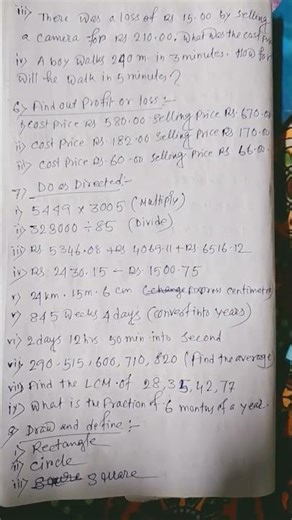 iii) There was a loss of Rs 15.00 by selling
a camera for Rs 210.00. What was the cost
iv) A boy walks 240 m. in 3 minutes. How far
will he walk in 5 minutes?
6) Find out Profit or loss:-
i) cost Price Rs 580.00 selling Price Rs. 670.00
ii) cost Price Rs. 182.00 selling Price Rs 170.00
iii) cost Price Rs. 60.00 selling Price Rs 66.00
7) Do as Directed:-
i) 5449 x 3005 (Multiply)
ii) 323000 ÷ 85 (Divide)
iii) Rs 5346.08 + Rs 4069.11 + Rs 6516.12
iv) Rs 2430.15 - Rs 1500.75
v) 24 km. 15m. 6 cm express centimetre
vi) 845 weeks 4 days (convert into years)
vi) 2 days 12 hrs 50 min into second
vii) 290. 515, 600, 710, 820 (find the average
viii) Find the LCM of 28, 35, 42, 77
ix) What is the fraction of 6 months of a year.
8) Draw and define:-
i) Rectangle
ii) circle
iii) Square